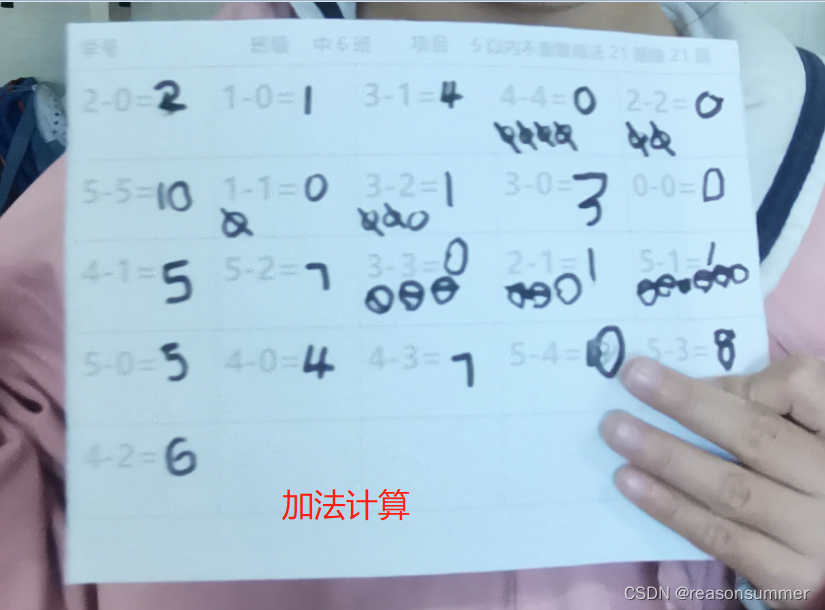 学号 班级 中6班 项目 5以内不重复减法 21 题抽 21 题
2-0=2 1-0=1 3-1=4 4-4=0 2-2=0
5-5=10 1-1=0 3-2=1 3-0=3 0-0=0
4-1=5 5-2=7 3-3=0 2-1=1 5-1=1
5-0=5 4-0=4 4-3=7 5-4= 5-3=8
4-2=6
加法计算
CSDN @reasonsummer